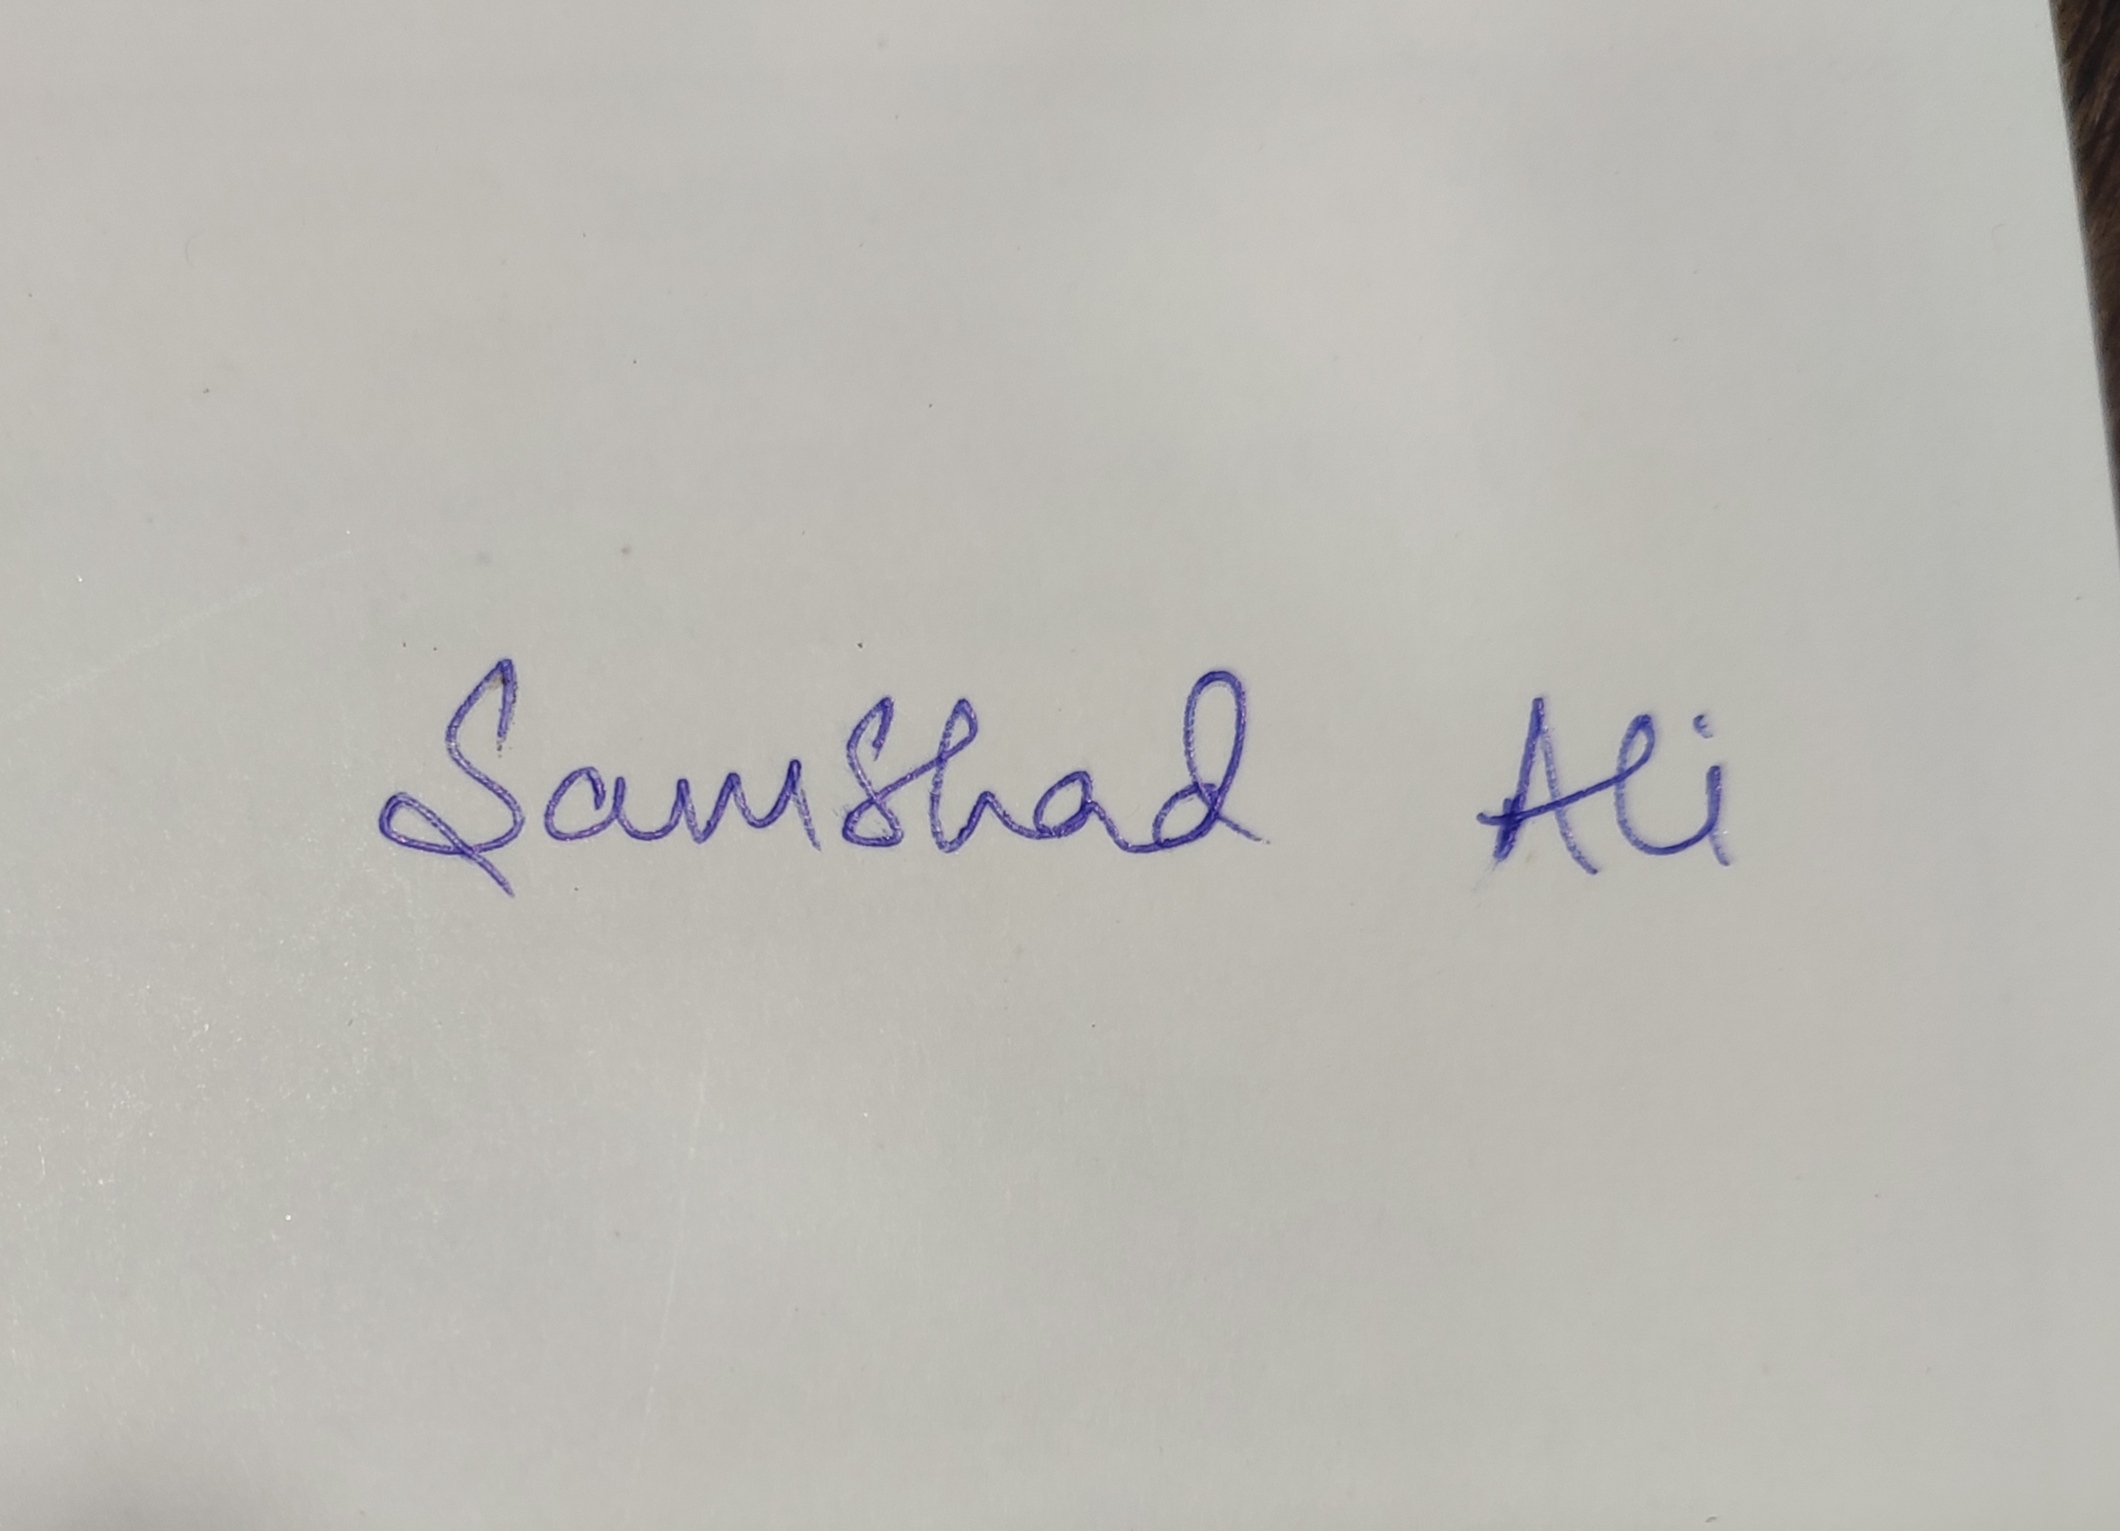 Samshad Ali